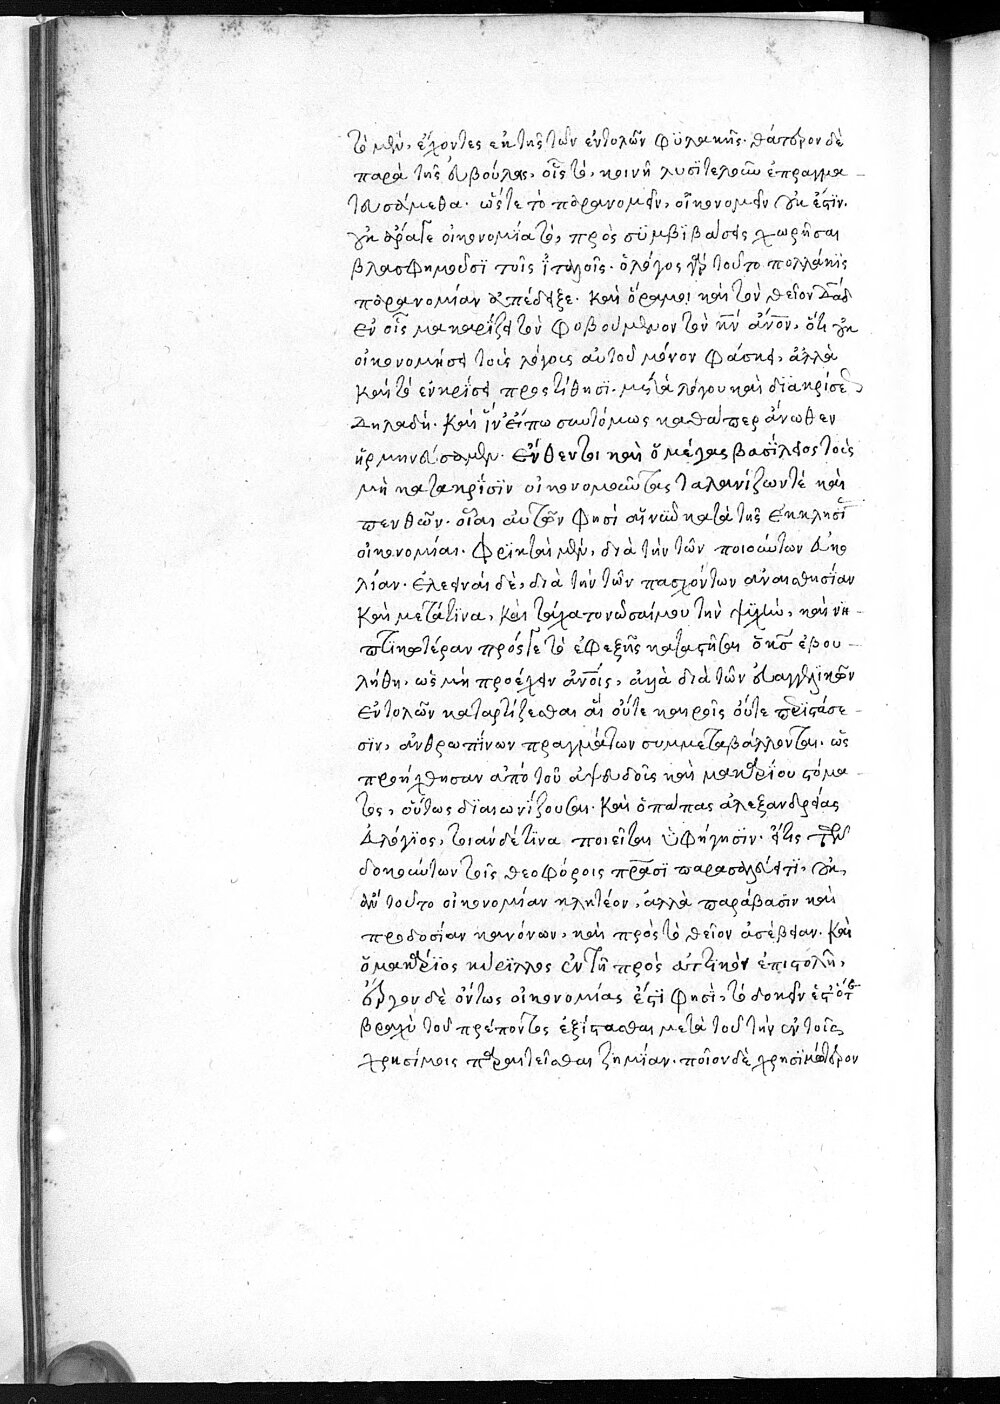 τὸ μὲν, ἔχοντες ἐκ τῆς τῶν ἐντολῶν φϋλακῆς· θάτερον δὲ
παρὰ τῆς εὐβουλίας, οἷς τὸ, κοινῆ λυσϊτελοῦν ἐπραγμα
τευσάμεθα· ὥστε τὸ παρανομεῖν, οἰκονομεῖν οὐκ ἔστϊν·
οὐκ ἄρα γε οἰκονομία τὸ, πρὸς σϋμβϊβάσεις χωρῆσαι
βλασφημοῦσϊ τοῖς · ὁ λόγος γὰρ τοῦτο πολλάκϊς
παρανομίαν ἀπέδειξε· καὶ ὅρα μοι καὶ τὸν θεῖον Δαδ
ἐν οἷς μακαρίζει τὸν φοβούμενον τὸν κν ανον, ὅτι οὐκ
οἰκονομήσει τοὺς λόγους αὐτοῦ μόνον φάσκει, ἀλλὰ
καὶ τὸ ἐν κρίσει προστίθησϊ· μετὰ λόγου καὶ διακρίσεως
δηλαδή· καὶ ἵν' εἴπω συντόμως καθάπερ ἄνωθεν
ἡρμηνεύσαμεν· ἔνθεν τοι καὶ ὁ μέγας βασίλειος τοὺς
μὴ κατακρίσϊν οἰκονομοῦντας ταλανίζων τὲ καὶ
πενθῶν· οἷαι αὐτῶν φησὶ αἱ νῦν κατὰ τῆς ἐκκλησί
οἰκονομίαι· φρϊκταὶ μὲν, διὰ τὴν τῶν ποιούντων δειλίαν
λίαν· ἐλεειναὶ δὲ, διὰ τὴν τῶν πασχόντων ἀναισθησίαν
καὶ μετά τϊνα, καὶ τάχα τονώσαί μου τὴν ψϋχὴν, καὶ νη
πτικωτέραν πρός γε τὸ ἐφεξῆς καταστῆσαι ὁ κς ἐβου
λήθη, ὡς μὴ προσέχειν ανοις, ἀλλὰ διὰ τῶν εὐαγγελϊκῶν
ἐντολῶν καταρτίζεσθαι αἳ οὔτε καιροῖς οὔτε περϊστάσε
σϊν, ἀνθρωπίνων πραγμάτων συμμεταβάλλονται· ὡς
προήχθησαν ἀπὸ τοῦ ἀψευδοῦς καὶ μακαρίου στόμα
τος, οὕτως δϊαιωνίζουσαι· καὶ ὁ πάπας ἀλεξανδρείας
εὐλόγιος, τοιάνδέ τϊνα ποιεῖται ὑφήγησϊν· εἴ τις τῶν
δοκούντων τοῖς θεοφόροις πράσϊ παρασαλεύει τϊ, οὐκ,
ἂν τοῦτο οἰκονομίαν κλητέον, ἀλλὰ παράβασϊν καὶ
προδοσίαν κανόνων, καὶ πρὸς τὸ θεῖον ἀσέβειαν· καὶ
ὁ μακάρϊος κύρϊλλος ἐν τῆ πρὸς ἀττϊκὸν ἐπιστολῆ,
δὲ ὄντως οἰκονομίας ἐστϊ φησὶ, τὸ δοκεῖν ἔσθ' ὅτε
βραχὺ τοῦ πρέποντος ἐξίστασθαι μετὰ τοῦ τὴν ἐν τοῖς
χρησίμοις παραιτεῖσθαι ζημίαν· ποῖον δὲ χρησϊμώτερον